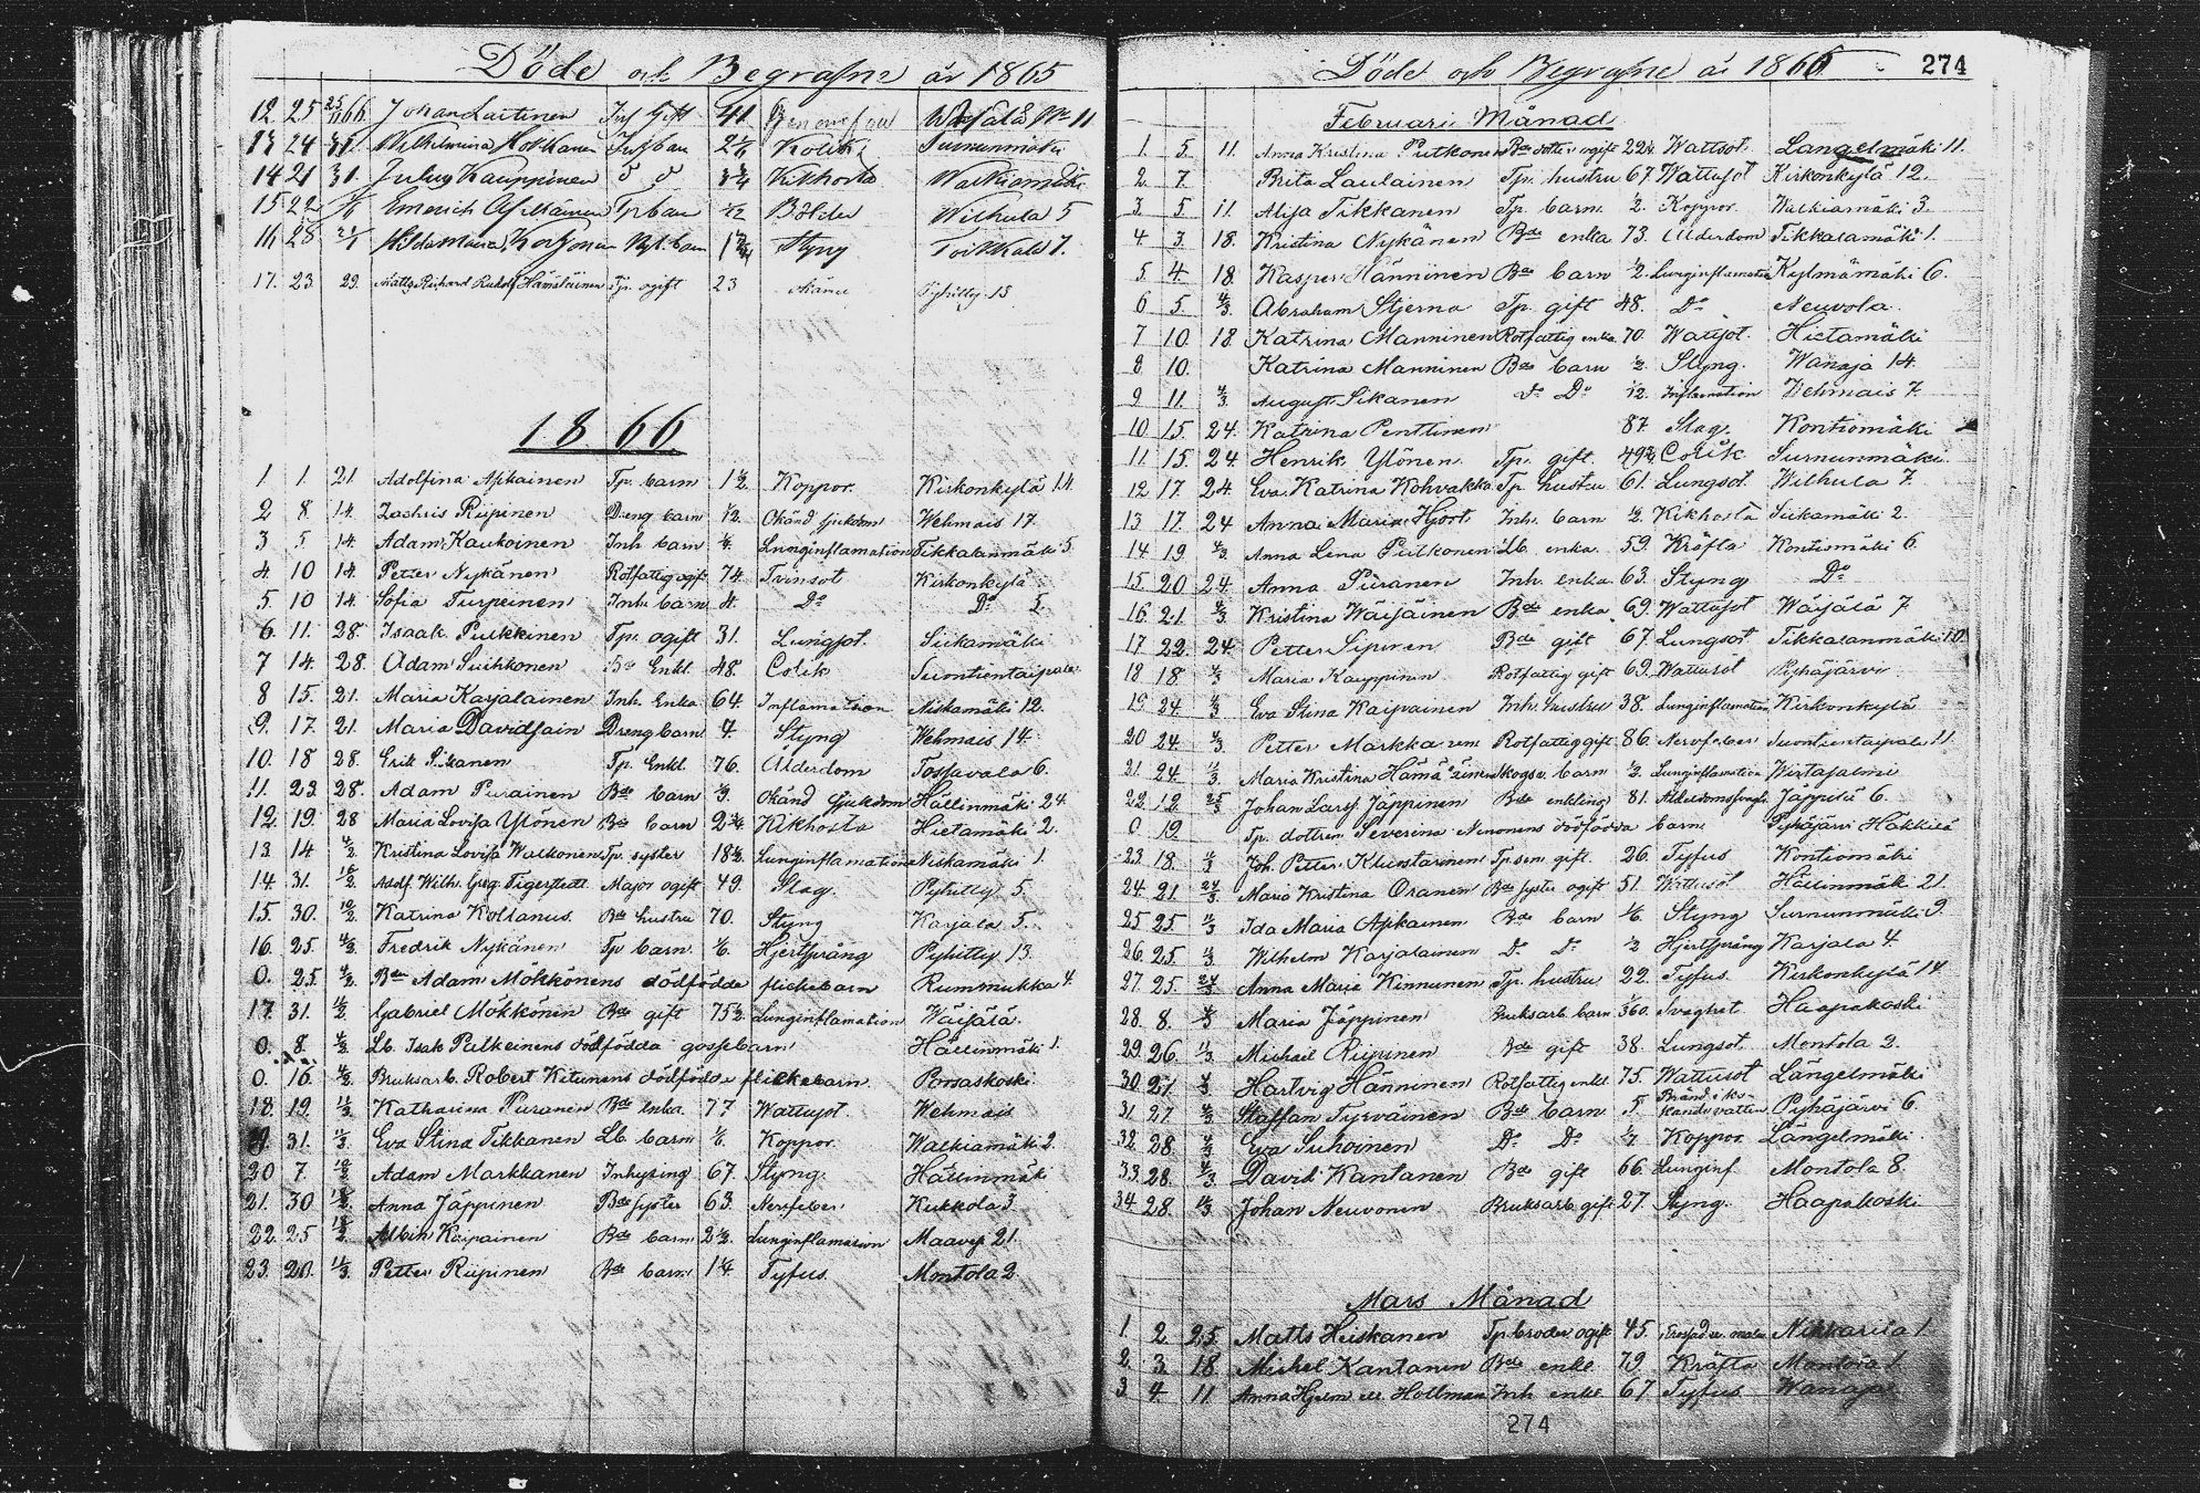 Döde och Begrafne år 1865
12. 25 25/11 66. Johan Laitinen Inh Gift 41 Wäjälä No 11
13 24 31. Wilhelmina Inh barn Kolik Surnunmäki
14 21 31. Julius Kauppinen d d Kikhosta Walkiamäki
15 22 Emerich Tp barn 1/12 Bölder Wilhula 5
16 28 21/1 Hilda Maria barn Styng Torkkala 7.
17. 23 29. Matts Richard Rudolf Hämäläinen Tp. ogift 23 Pyhitty 13
1866
1 1. 21. Adolfina Apkainen Tp. barn 1 1/2 Koppor. Kirkonkylä 14.
2 8 14. Zachris Riipinen Dreng barn 1/2. Okänd sjukdom Wehmais 17.
3 5 14. Adam Kaukoinen Inh barn Lunginflamation Tikkalanmäki 5
4. 10 14. Petter Nykänen Rotfattig ogift 74. Tvinsot Kirkonkylä
5. 10 14. Sofia Turpeinen Inh. barn 4. Do Do 5.
6. 11. 28. Isaak Pulkkinen Tp. ogift 31. Lungsot. Siikamäki
7 14. 28. Adam Suihkonen Enkl. 48. Colik Suontientaipale
8 15. 21. Maria Karjalainen Inh. Enka 64. Inflamation Niskamäki 12.
9. 17. 21. Maria Davidsain Dreng barn 7. Styng Wehmais 14.
10. 18 28. Erik Sikanen Tp. Enkl. 76. Ålderdom Tossavala 6.
11. 23. 28. Adam Purainen Bde barn 1/3. Okänd sjukdom Hällinmäki 24
12. 19. 28 Maria Lovisa Ylönen Bde barn 2 1/4. Kikhosta Hietamäki 2.
13 14 4/2 Kristina Lovisa Walkonen Tp. syster 18 1/2. Lunginflamation Niskamäki 1.
14. 31. 18/2. Adolf. Wilh. Greg. Tigerstedt Major ogift 49. Slag. Pyhitty. 5.
15. 30. 18/2. Katrina Koltanus. Bde hustru 70. Styng Karjala 5.
16. 25. 4/2. Fredrik Nykänen Tp barn. 1/6. Hjertsprång Pyhitty 13.
0. 25. 4/2. Bde Adam Mökkönens dödfödda flickebarn Rummukka 4.
17. 31. 11/2. Gabriel Mökkönen Bde gift 75 1/2. Lunginflamation Wäijälä.
0. 8. 4/2. Lb. Isak Pulkeinens dödfödda gossebarn Hällinmäki 1.
0. 16. 4/2. Bruksarb. Robert Kitunens dödfödda flickebarn. Porsaskoski
18. 19. 11/3. Katharina Puranen Bde enka. 77 Wattusot. Wehmais
31. 11/3. Eva Stina Tikkanen Lb. barn 1/6. Koppor. Walkiamäki 2.
20 7. 18/2. Adam Markkanen Inhysing 67. Styng. Hällinmäki
21. 30 18/2. Anna Jäppinen Bde syster 63. Nervfeber Kukkola 3
22. 25 18/2 Albin Kaipainen Bde barn 2 1/2. Lunginflamasion Maavesi 21.
23. 20. 11/3. Petter Riipinen Bde barn 1 1/4. Tyfus. Montola 2
Döde och Begrafne år 1866 274
Februari Månad
1. 5 11. Anna Kristina Putkonen Bde dotter ogift Wattsot. Längelmäki 11.
2 7. Brita Laulainen Tp. hustru 67. Wattusot Kirkonkylä 12.
3. 5. 11. Alisa Tikkanen Tp. barn. 1/2. Koppor. Walkiamäki 3.
4 3. 18. Kristina Nykänen Bde enka 73. Ålderdom Tikkalamäki 1.
5. 4. 18. Kasper Hänninen Bde barn 1/2. Lunginflamation Kylmämäki 6.
6 5. 4/3. Abraham Stjerna Tp. gift 48. Do Neuvola.
7 10. 18. Katrina Manninen Rotfattig enka 70. Wattsot. Hietamäki
8 10. Katrina Manninen Bde barn 1/2. Styng. Wanaja 14.
9 11. 4/3. August Sikanen Do Do 1/2. Inflamation Wehmais 7.
10 15. 24. Katrina Penttinen 87. Slag. Kontiomäki
11. 15. 24. Henrik Ylönen Tp. gift. Colik Surnunmäki
12 17. 24. Eva Katrina Kohvakka Tp hustru 61. Lungsot. Wilhula 7.
13. 17. 24 Anna Maria Hjort Inh. barn 1/2. Kikhosta Siikamäki 2.
14 19 4/3. Anna Lena Pulkonen Lb. enka. 59. Kräfta Kontiomäki 6.
15. 20 24. Anna Puranen Inh. enka 63. Styng Do
16. 21. 4/3 Kristina Wäisäinen Bde enka 69. Wattusot Wäijälä 7.
17 22. 24. Petter Sipinen Bde gift 67. Lungsot Tikkalanmäki 10.
18 18. 4/3 Maria Kauppinen Rotfattig gift 69. Wattusot Pyhäjärvi
19 24. 4/3 Eva Stina Kaipainen Inh. hustru 38. Lunginflamation Kirkonkylä
20 24. 4/3. Petter Markkanen Rotfattig gift 86. Nervfeber Suontientaipale 11
21. 24. 11/3. Maria Kristina Hämäläinen Skogsv. barn 1/2. Lunginflamation Wirtasalmi
22. 12. 25/3 Johan Larss. Jäppinen Bde enkling 81. Ålderdomssvagh. Jäppilä 6.
0 19. Tp. dottren Severina Ninonens dödfödda barn. Pyhäjärvi Häkkilä
23. 18. 11/3 Joh. Petter Kluustarinen Tp. son gift. 26. Tyfus Kontiomäki
24. 21. 24/3. Maria Kristina Oranen Bde syster ogift 51. Wattusot Hällinmäki 21.
25 25. 11/3 Ida Maria Apkainen Bde barn 1/6. Styng Surnunmäki 9.
26. 25. 11/3. Wilhelm Karjalainen Do Do 1/2 Hjertsprång Karjala 4.
27. 25. 24/3 Anna Maria Kinnunen Tp. hustru 22. Tyfus. Kirkonkylä 14.
28. 8. 4/3 Maria Jäppinen Bruksarb. barn 1/360. Svaghet Haapakoski
29. 26. 11/3. Michael Riipinen Bde gift 38. Lungsot. Montola 2.
30. 27. 4/3 Hartvig Hänninen Rotfattig enkl. 75. Wattusot Längelmäki
31. 27. 4/3 Staffan Tyrväinen Bde barn 5. Bränd i kokande vatten Pyhäjärvi 6.
32. 28. 4/3. Eva Suhoinen Do Do 1/7 Koppor. Längelmäki.
33. 28. 4/3. David Kantanen Bde gift 66. Lunginf. Montola 8.
34. 28. 11/3 Johan Neuvonen Bruksarb gift 27. Styng. Haapakoski.
Mars Månad
1. 2. 25. Matts Heiskanen Tp broder ogift 45. Nikkarila 1.
2. 3. 18 Michel Kantanen Bde enkl. 79 Kräfta Montola 1.
3. 4. 11 Anna Hjelm ell. Hollman Inh enka 67 Tyfus Wanaja
274